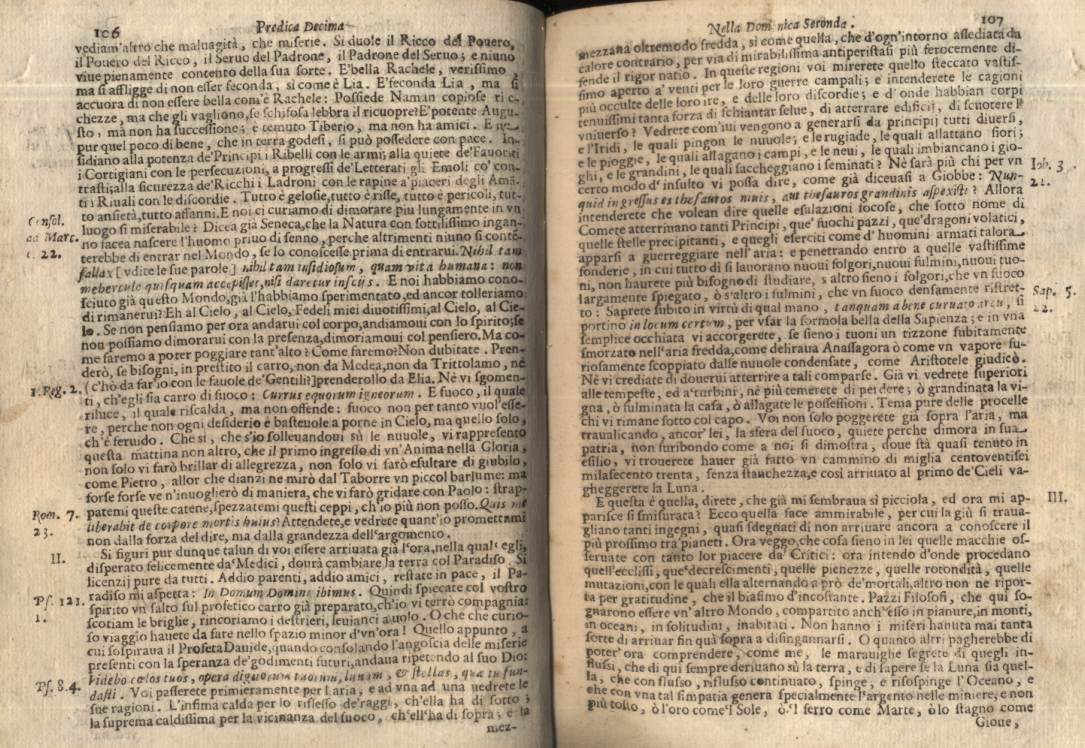 106
Predica Decima
vediam'altro che maluagità, che miserie. Si duole il Ricco del Pouero,
il Pouero del Ricco, il Seruo del Padrone, il Padrone del Seruo; e niuno
viue pienamente contento della sua sorte. E'bella Rachele, verissimo;
ma si affligge di non esser feconda, si come è Lia. E'feconda Lia, ma si
accuora di non essere bella com'è Rachele: Possiede Naman copiose ric-
chezze, ma che gli vagliono, se schifosa lebbra il ricuopre? E'potente Augu-
sto, mà non ha successione; è temuto Tiberio, ma non ha amici. E ne
pur quel poco di bene, che in terra godesi, si può possedere con pace. In-
sidiano alla potenza de'Principi i Ribelli con le armi; alla quiete de'Fauoriti
i Cortigiani con le persecuzioni, a progressi de'Letterati gli Emoli co'con-
trasti; alla sicurezza de'Ricchi i Ladroni con le rapine a'piaceri degli Aman-
ti i Riuali con le discordie. Tutto è gelosie, tutto è risse, tutto è pericoli, tut-
to ansietà, tutto affanni. E noi ci curiamo di dimorare piu lungamente in vn
luogo sì miserabile? Dicea già Seneca, che la Natura con sottilissimo ingan-
no facea nascere l'huomo priuo di senno, perche altrimenti niuno si conte-
terebbe di entrar nel Mondo, se lo conoscesse prima di entrarui. Nihil tam
fallax [vdite le sue parole] nihil tam insidiosum, quam vita humana: non
mehercule quisquam accepisset, nisi daretur inscijs. E noi habbiamo cono-
sciuto già questo Mondo, già l'habbiamo sperimentato, ed ancor tolleriamo
di rimanerui? Eh al Cielo, al Cielo, Fedeli miei diuotissimi, al Cielo, al Cie-
lo. Se non pensiamo per ora andarui col corpo, andiamoui con lo spirito; se
non possiamo dimorarui con la presenza, dimoriamoui col pensiero. Ma co-
me faremo a poter poggiare tant'alto? Come faremo? Non dubitate. Pren-
derò, se bisogni, in prestito il carro, non da Medea, non da Trittolamo, nè
(c'hò da far'io con le fauole de'Gentili?) prenderollo da Elia. Nè vi sgomen-
ti, ch'egli sia carro di fuoco: Currus equorum igneorum. E fuoco, il quale
riluce, il quale riscalda, ma non offende: fuoco non per tanto vuol'esse-
re, perche non ogni desiderio è basteuole a porne in Cielo, ma quello solo,
ch'è feruido. Che si, che s'io solleuandoui sù le nuuole, vi rappresento
questa mattina non altro, che il primo ingresso di vn'Anima nella Gloria,
non solo vi farò brillar di allegrezza, non solo vi farò esultare di giubilo,
come Pietro, allor che dianzi ne mirò dal Taborre vn piccol barlume: ma
forse forse ve n'inuoglierò di maniera, che vi farò gridare con Paolo: strap-
patemi queste catene, spezzatemi questi ceppi, ch'io più non posso. Quis me
liberabit de corpore mortis huius? Attendete, e vedrete quant'io promettami
non dalla forza del dire, ma dalla grandezza dell'argomento.
Si figuri pur dunque talun di voi essere arriuata già l'ora, nella quale egli,
disperato felicemente da'Medici, dourà cambiare la terra col Paradiso. Si
licenzij pure da tutti. Addio parenti, addio amici, restate in pace, il Pa-
radiso mi aspetta: In Domum Domini ibimus. Quindi spiccate col vostro
spirito vn salto sul profetico carro già preparato, ch'io vi terrò compagnia:
scotiam le briglie, rincoriamo i destrieri, leuianci a uolo. O che che curio-
so viaggio hauete da fare nello spazio minor d'vn'ora! Quello appunto, a
cui sospiraua il Profeta Dauide, quando consolando l'angoscia delle miserie
presenti con la speranza de'godimenti futuri, andaua ripetendo al suo Dio:
Videbo cœlos tuos, opera digitorum tuorum, lunam, & stellas, quæ tu fun-
dasti. Voi passerete primieramente per l'aria, e ad vna ad una uedrete le
sue ragioni. L'infima calda per lo riflesso de'raggi, ch'ella ha di sotto;
la suprema caldissima per la vicinanza del fuoco, ch'ell'ha di sopra; e la
mez-
Consol.
ad Marc.
c. 22.
1. Reg. 2.
Rom. 7.
23.
II.
Ps. 121.
1.
Ps. 8.4.
Nella Domenica Seconda.
107
mezzana oltremodo fredda, si come quella, che d'ogn'intorno assediata da
calore contrario, per via di mirabilissima antiperistasi più ferocemente di-
fende il rigor natio. In queste regioni voi mirerete quello steccato vastis-
simo aperto a' venti per le loro guerre campali; e intenderete le cagioni
più occulte delle loro ire, e delle loro discordie; e d' onde habbian corpi
tenuissimi tanta forza di schiantar selue, di atterrare edificij, di scuotere l'
vniuerso? Vedrete com'iui vengono a generarsi da principij tutti diuersi,
e l'Iridi, le quali pingon le nuuole; e le rugiade, le quali allattano fiori;
e le pioggie, le quali allagano i campi, e le neui, le quali imbiancano i gio-
ghi, e le grandini, le quali saccheggiano i seminati? Nè sarà più chi per vn
certo modo d' insulto vi possa dire, come già diceuasi a Giobbe: Nun-
quid ingressus es thesauros niuis, aut thesauros grandinis aspexisti? Allora
intenderete che volean dire quelle esalazioni focose, che sotto nome di
Comete atterriuano tanti Principi, que' fuochi pazzi, que'dragoni volatici,
quelle stelle precipitanti, e quegli eserciti come d' huomini armati talora
apparsi a guerreggiare nell'aria: e penetrando entro a quelle vastissime
fonderie, in cui tutto dì si lauorano nuoui folgori, nuoui fulmini, nuoui tuo-
ni, non haurete più bisogno di studiare, s altro sieno i folgori, che vn fuoco
largamente spiegato, ò s'altro i fulmini, che vn fuoco densamente ristret-
to: Saprete subito in virtù di qual mano, tanquam a bene curuato arcu, si
portino in locum certum, per vsar la formola bella della Sapienza; e in vna
semplice occhiata vi accorgerete, se sieno i tuoni un tizzone subitamente
smorzato nell'aria fredda, come deliraua Anassagora ò come vn vapore fu-
riofamente scoppiato dalle nuuole condensate, come Aristotele giudicò.
Nè vi crediate di douerui atterrire a tali comparse. Già vi vedrete superiori
alle tempeste, ed a'turbini, nè più temerete di perdere; ò grandinata la vi-
gna, ò fulminata la casa, ò allagate le possessioni. Tema pure delle procelle
chi vi rimane sotto col capo. Voi non solo poggerete già sopra l'aria, ma
traualicando, ancor'lei, la sfera del fuoco, quiete perche dimora in sua
patria, non furibondo come a noi si dimostra, doue stà quasi tenuto in
esilio, vi trouerete hauer già fatto vn cammino di miglia centoventisei
milasecento trenta, senza stanchezza, e così arriuato al primo de'Cieli va-
gheggerete la Luna.
E questa è quella, direte, che già mi sembraua sì picciola, ed ora mi ap-
parisce sì smisurata? Ecco quella face ammirabile, per cui la giù si traua-
gliano tanti ingegni, quasi sdegnati di non arriuare ancora a conoscere il
più prossimo tra pianeti. Ora veggo, che cosa sieno in lei quelle macchie os-
seruate con tanto lor piacere da' Critici: ora intendo d'onde procedano
quell'ecclissi, que'decrescimenti, quelle pienezze, quelle rotondità, quelle
mutazioni, con le quali ella alternando a prò de'mortali, altro non ne ripor-
ta per gratitudine, che il biasimo d'incostante. Pazzi Filosofi, che qui so-
gnarono essere vn'altro Mondo, compartito anch'esso in pianure, in monti,
in oceani, in solitudini, inabitati. Non hanno i miseri hanuta mai tanta
sorte di arriuar fin quà sopra a disingannarsi. O quanto altri pagherebbe di
poter' ora comprendere, come me, le marauiglie segrete di quegli in-
flussi, che di qui sempre deriuano sù la terra, e di sapere se la Luna sia quel-
la, che con flusso, riflusso continuato, spinge, e risospinge l'Oceano, e
che con vna tal simpatia genera specialmente l'argento nelle miniere, e non
più tosto, ò l'oro come'l Sole, ò'l ferro come Marte, ò lo stagno come
Gioue,
Iob. 3.
21.
Sap. 5.
22.
III.